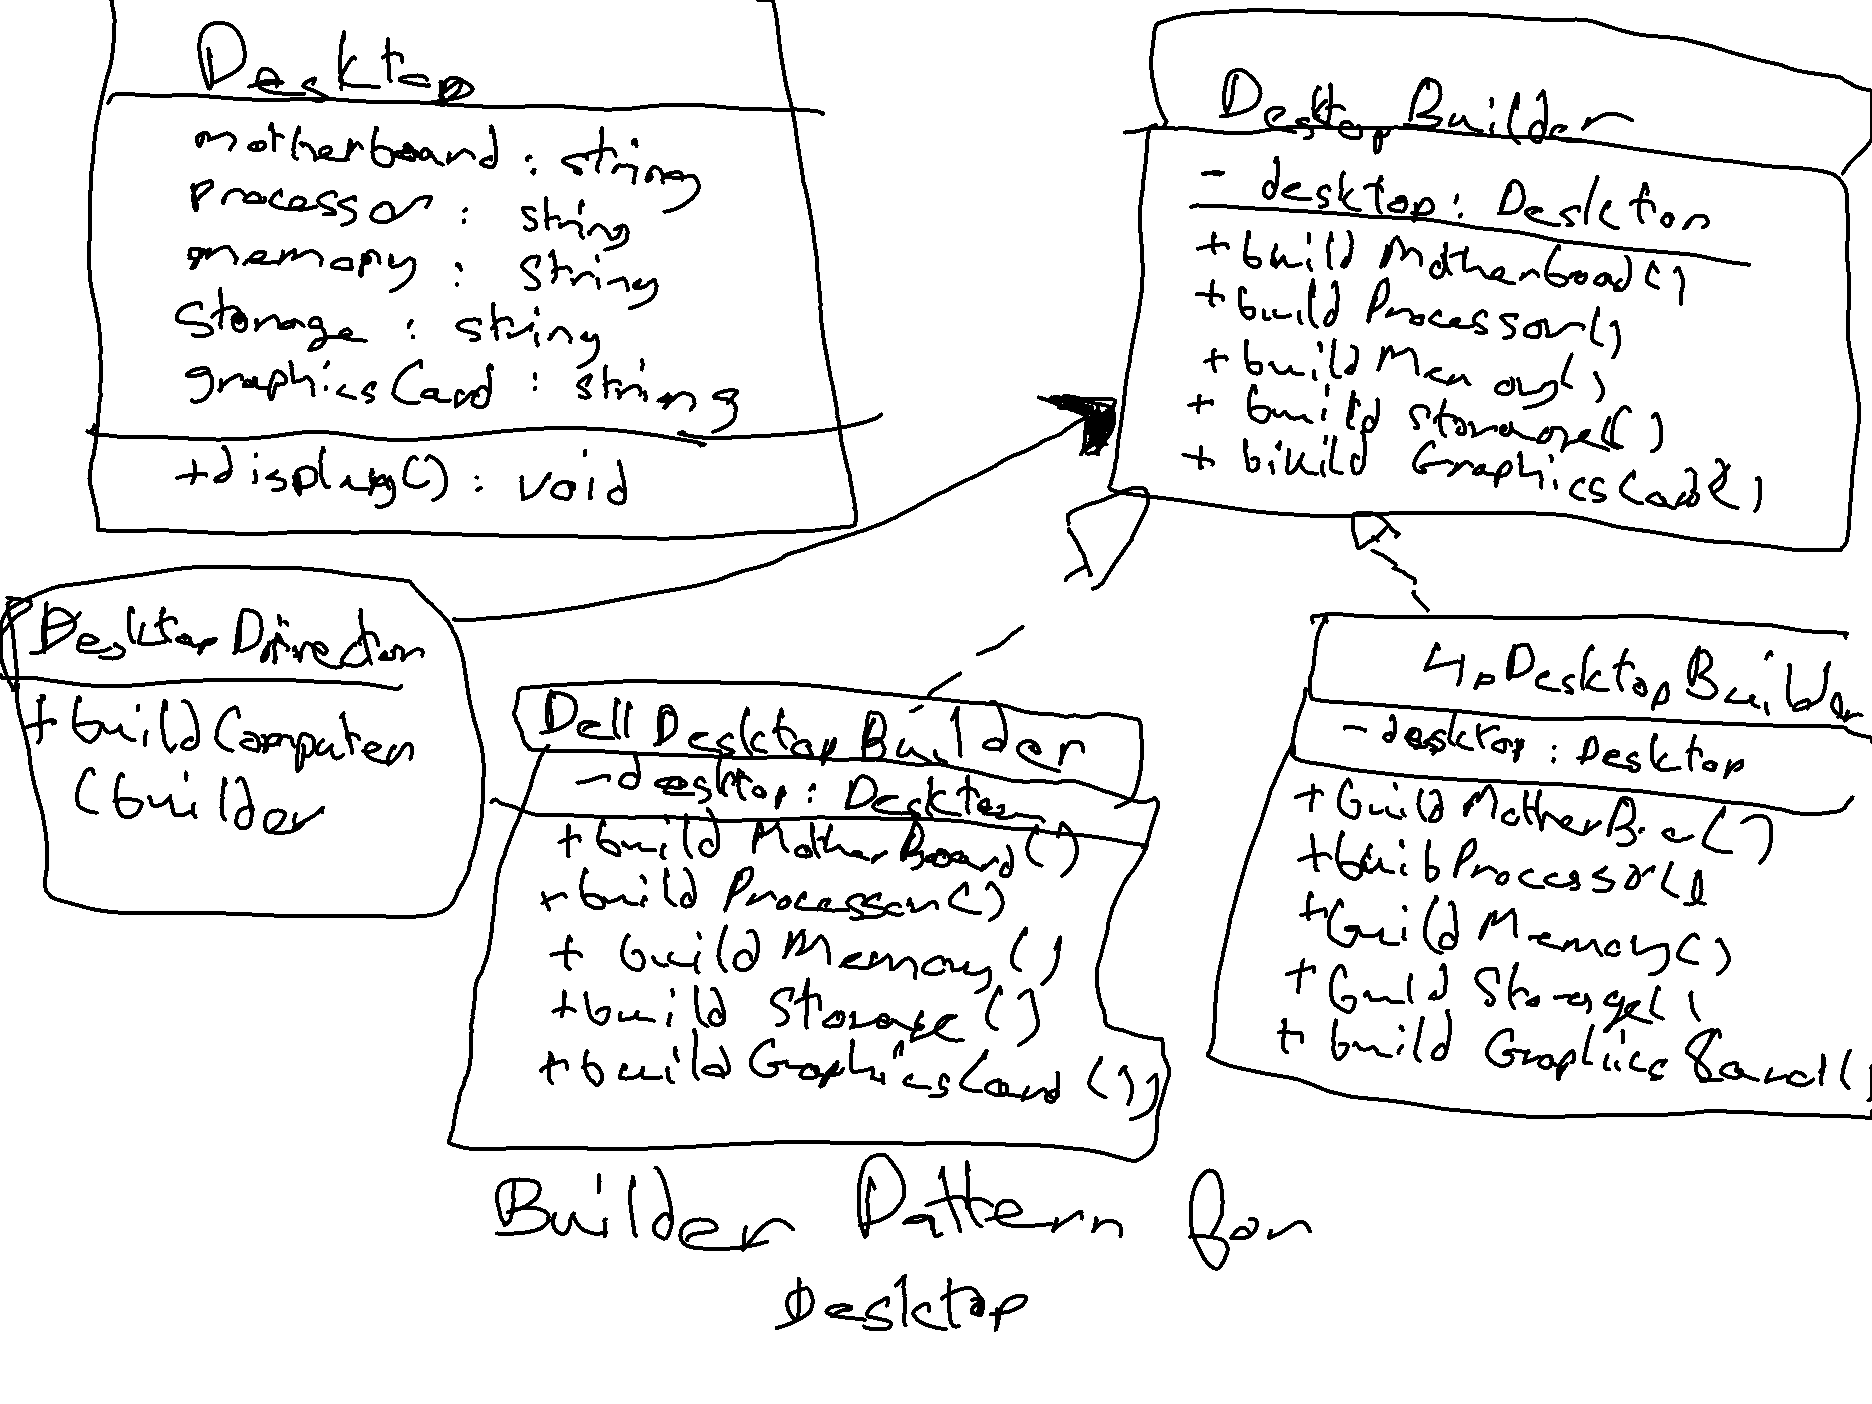 Desktop
motherboard : string
processor : string
memory : string
storage : string
graphicsCard : string
+display() : void
DesktopBuilder
- desktop : Desktop
+ build Motherboad()
+ build Processor()
+ build Memory()
+ build storage()
+ build GraphicsCard()
DesktopDirector
+ buildComputer
(builder
Dell Desktop Builder
- desktop : Desktop
+ build MotherBoard()
+ build Processor()
+ build Memory()
+ build Storage()
+ build GraphicsCard()
HpDesktopBuilder
- desktop : Desktop
+ build
+ Processor(
+ build Memory()
+ build Storage(
+ build Graphics
Builder Pattern For
Desktop